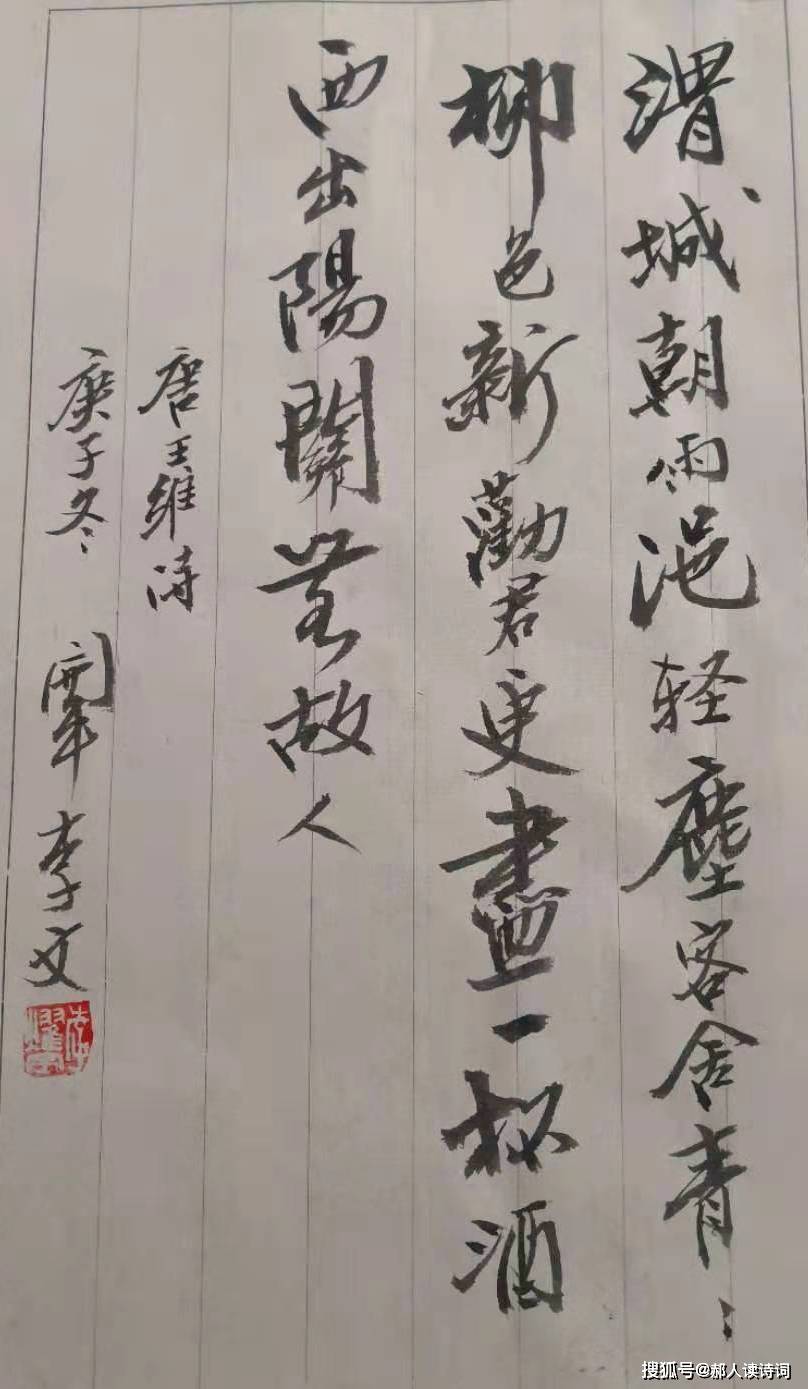 渭城朝雨浥轻塵客舍青々
柳色新勸君更盡一杯酒
西出陽關無故人
唐王維诗
庚子冬 李文
搜狐号@郝人读诗词